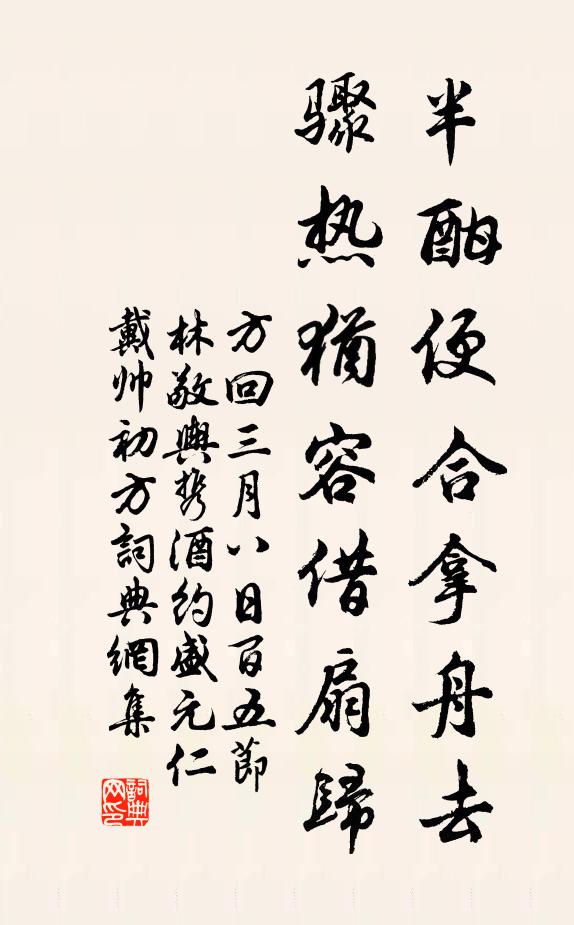 半酣便合拿舟去
骤热猶容借扇歸
方回三月八日百五節
林敬輿携酒約盛元仁
戴帅初方詞典網集
詞典网印